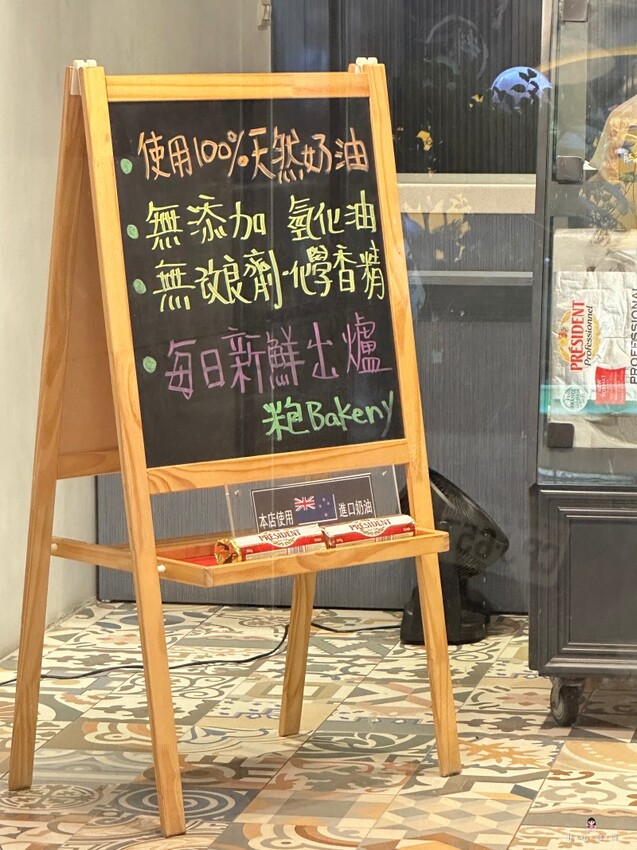 使用100%天然奶油
無添加 氫化油
無改良劑·化學香精
每日新鮮出爐
米包Bakeny
本店使用 進口奶油
PRÉSIDENT
PRÉSIDENT
PRÉSIDENT
Professionnel